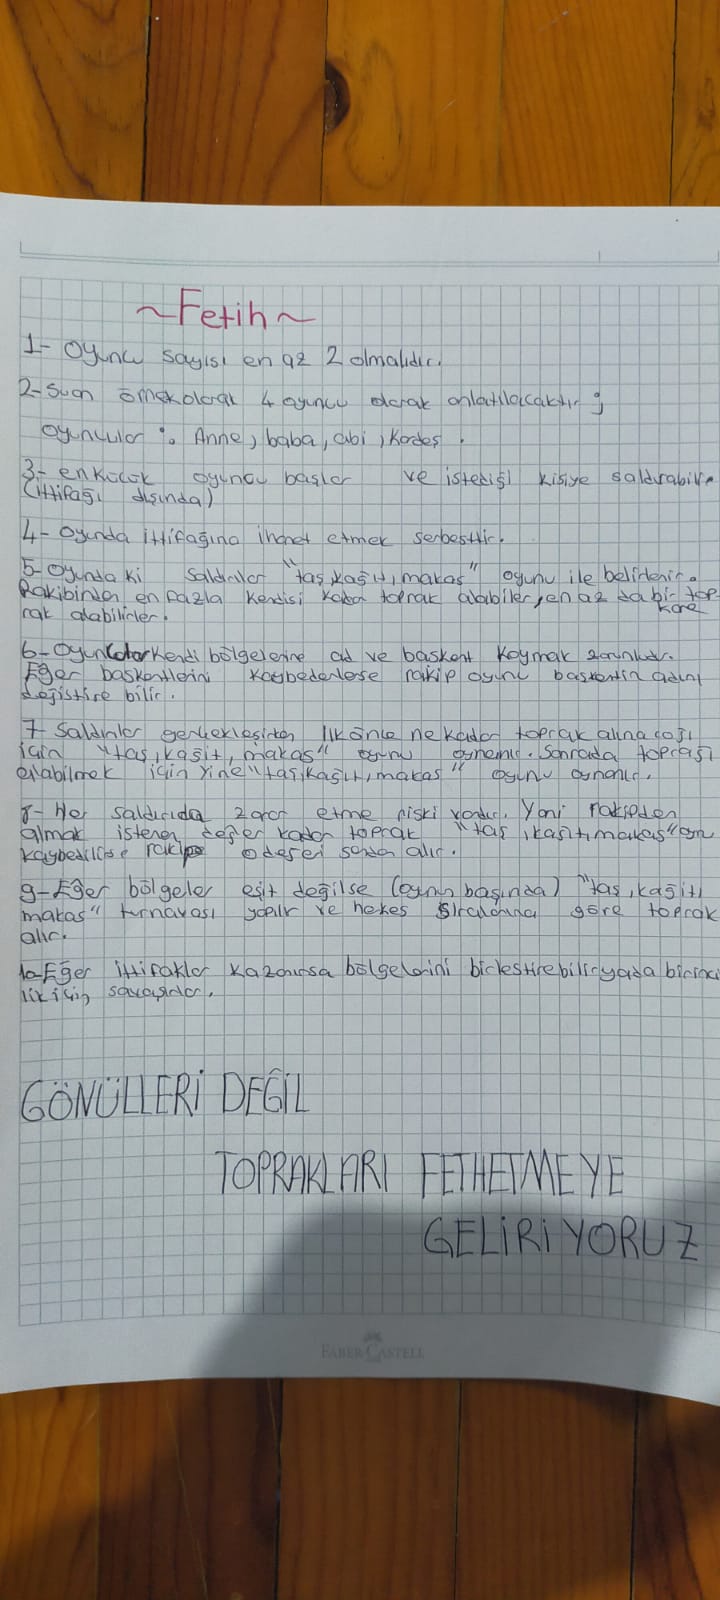 ~Fetih~
1- Oyuncu sayısı en az 2 olmalıdır.
2- Şuan örnek olarak 4 oyuncu olarak anlatılacaktır ;
oyuncular : Anne, baba, abi, kardeş .
3- en küçük oyuncu başlar ve istediği kişiye saldırabilir.
(ittifağı dışında)
4- Oyunda ittifağına ihanet etmek serbesttir.
5- Oyunda ki saldırılar "taş, kağıt, makas" oyunu ile belirlenir.
Rakibinden en fazla kendisi kadar toprak alabiler, en az da bir top
kare
rak alabilirler.
6- Oyuncular kendi bölgelerine ad ve başkent koymak zorunludur.
Eğer başkentlerini kaybederlerse rakip oyuncu başkentin adını
değiştire bilir.
7- Saldırılar gerçekleşirken ilk önce ne kadar toprak alınacağı
için "taş, kağıt, makas" oyunu oynanır. Sonrada toprağı
alabilmek için yine "taş, kağıt, makas" oyunu oynanır.
8- Her saldırıda zarar etme riski vardır. Yani rakipden
almak istenen değer kadar toprak "taş, kağıt, makas" oyn
kaybedilirse rakip o değeri senden alır.
9- Eğer bölgeler eşit değilse (oyun başında) "taş, kağıt,
makas" turnavası yapılır ve hekes sıralarına göre toprak
alır.
10- Eğer ittifaklar kazanırsa bölgelerini birleştirebilir yada birinci
lik için savaşırlar.
GÖNÜLLERİ DEĞİL
TOPRAKLARI FETHETMEYE
GELİRİYORUZ
FABER-CASTELL